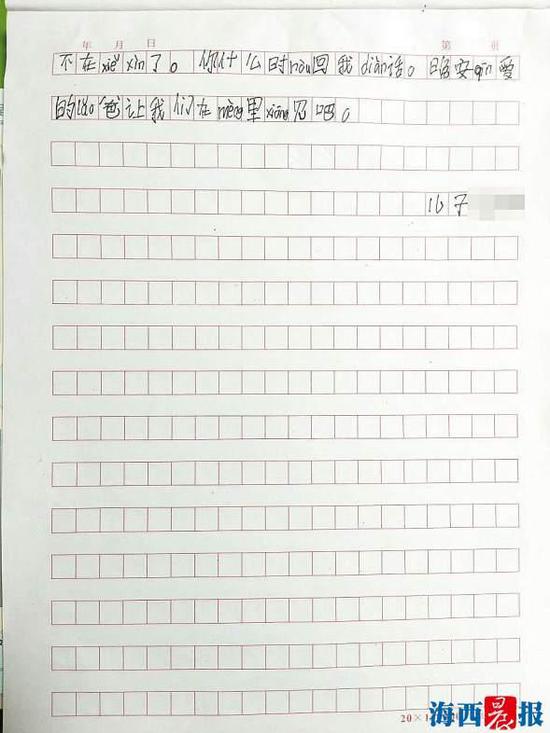 年 月 日 第 页
不在xiě xìn了。你什么时hòu回我diàn话。晚安qīn爱
的lǎo爸让我们在mèng里xiāng见吧。
儿子
20×1
海西晨报